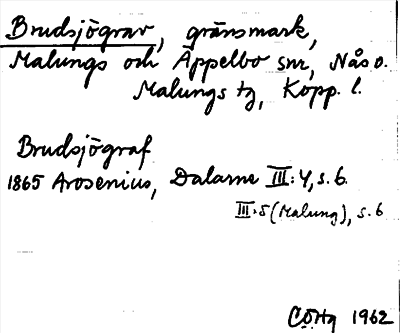 Brudsjögrav, gränsmark,
Malungs och Äppelbo snr, Nås o.
Malungs tg, Kopp. l.
Brudsjögraf
1865 Arosenius, Dalarne III:4, s. 6.
III:5 (Malung), s. 6
1962